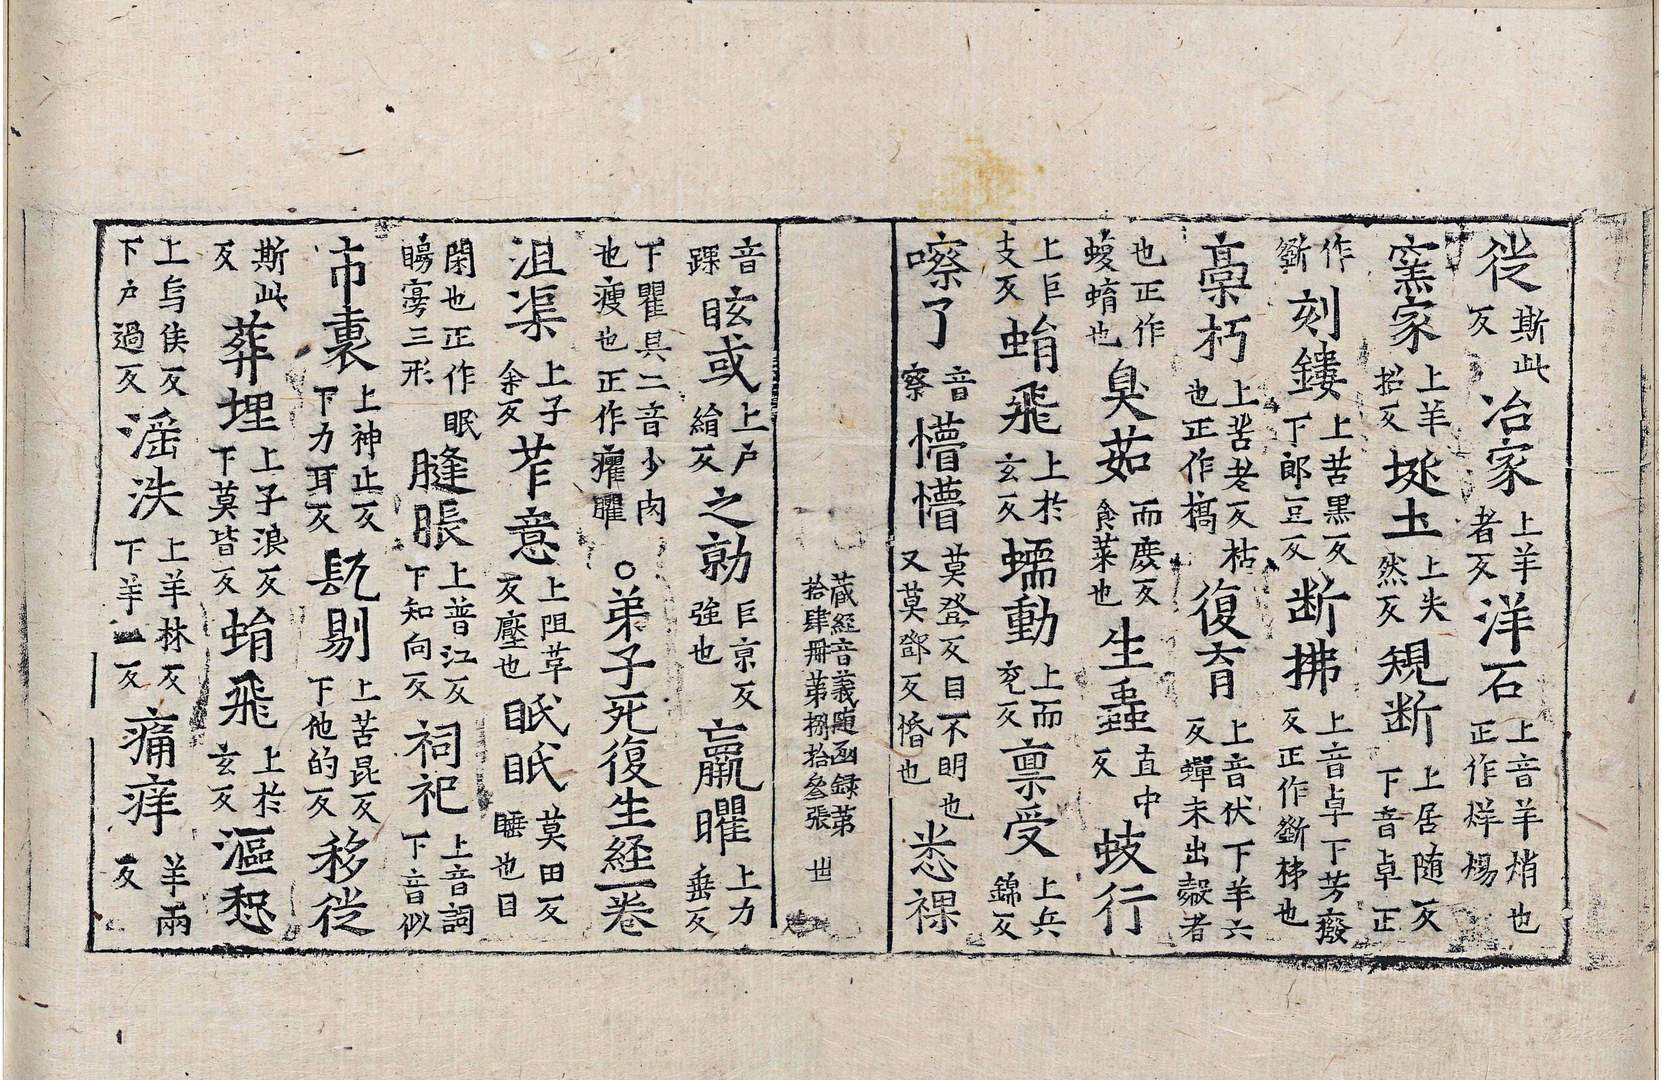 徙斯此反冶家上羊者反洋石上音羊焇也正作烊煬
窯家上羊招反埏土上失然反規断上居随反下音卓正
作斵刻鏤上苦黒反下郎豆反断拂上音卓下芳廢反正作斵柹也
槀朽上苦老反枯也正作槁復育上音伏下羊六反蟬未出㲉者
也正作蝬蜟也臭茹而庻反食菜也生蟲直中反蚑行
上巨支反蜎飛上於玄反蠕動上而兖反禀受上兵錦反
嚓了音察懵懵莫登反目不明也又莫鄧反惛也悉祼
藏經音義随函録第
拾肆冊第捌拾叄張 世
音踝眩或上户絹反之勍巨京反強也羸臞上力垂反
下瞿具二音少肉也瘦也正作癯臞○弟子死復生経一卷
沮渠上子余反苲意上阻革反壓也眂眂莫田反睡也目
閉也正作眠矊寡三形膖脹上普江反下知向反祠祀上音詞下音似
市裏上神止反下力耳反髡剔上苦昆反下他的反移徙
斯此反葬埋上子浪反下莫皆反蜎飛上於玄反漚惒
上烏侯反下户過反滛泆上羊林反下羊一反痛痒羊兩反